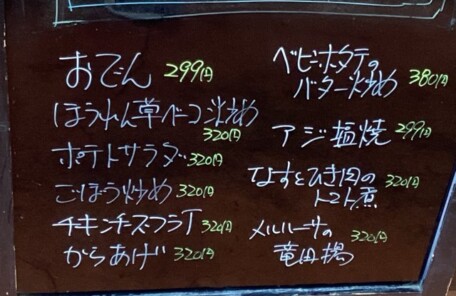 おでん 299円
ほうれん草ベーコン炒め
320円
ポテトサラダ 320円
ごぼう炒め 320円
チキンチーズフライ 320円
からあげ 320円
ベビーホタテの
バター炒め 380円
アジ塩焼 299円
なすとひき肉の
トマト煮 320円
メルルーサの
竜田揚 320円